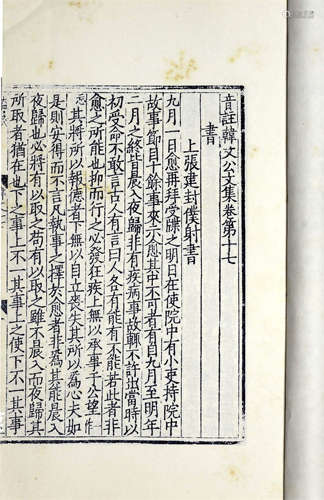 音註韓文公文集卷第十七
書
上張建封僕射書
九月一日愈再拜受牒之明日在使院中有小吏持院中
故事節目十餘事來示愈其中不可者有自九月至明年
二月之終皆晨入夜歸非有疾病事故輒不許出當時以
初受命不敢言古人有言曰人各有能有不能若此者非
愈之所能也抑而行之必發狂疾上無以承事于公
忘其將所以報德者下無以自立喪失其所以為心夫如
是則安得而不言凡執事之擇於愈者非為其能晨入
夜歸也必將有以取之苟有以取之雖不晨入而夜歸其
所取者猶在也下之事上不一其事上之使下不一其事